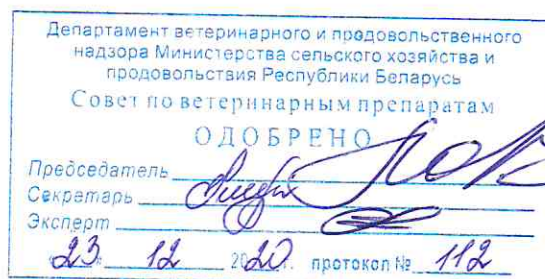 Департамент ветеринарного и продовольственного
надзора Министерства сельского хозяйства и
продовольствия Республики Беларусь
Совет по ветеринарным препаратам
ОДОБРЕНО
Председатель
Секретарь
Эксперт
23. 12 2020г. протокол № 112